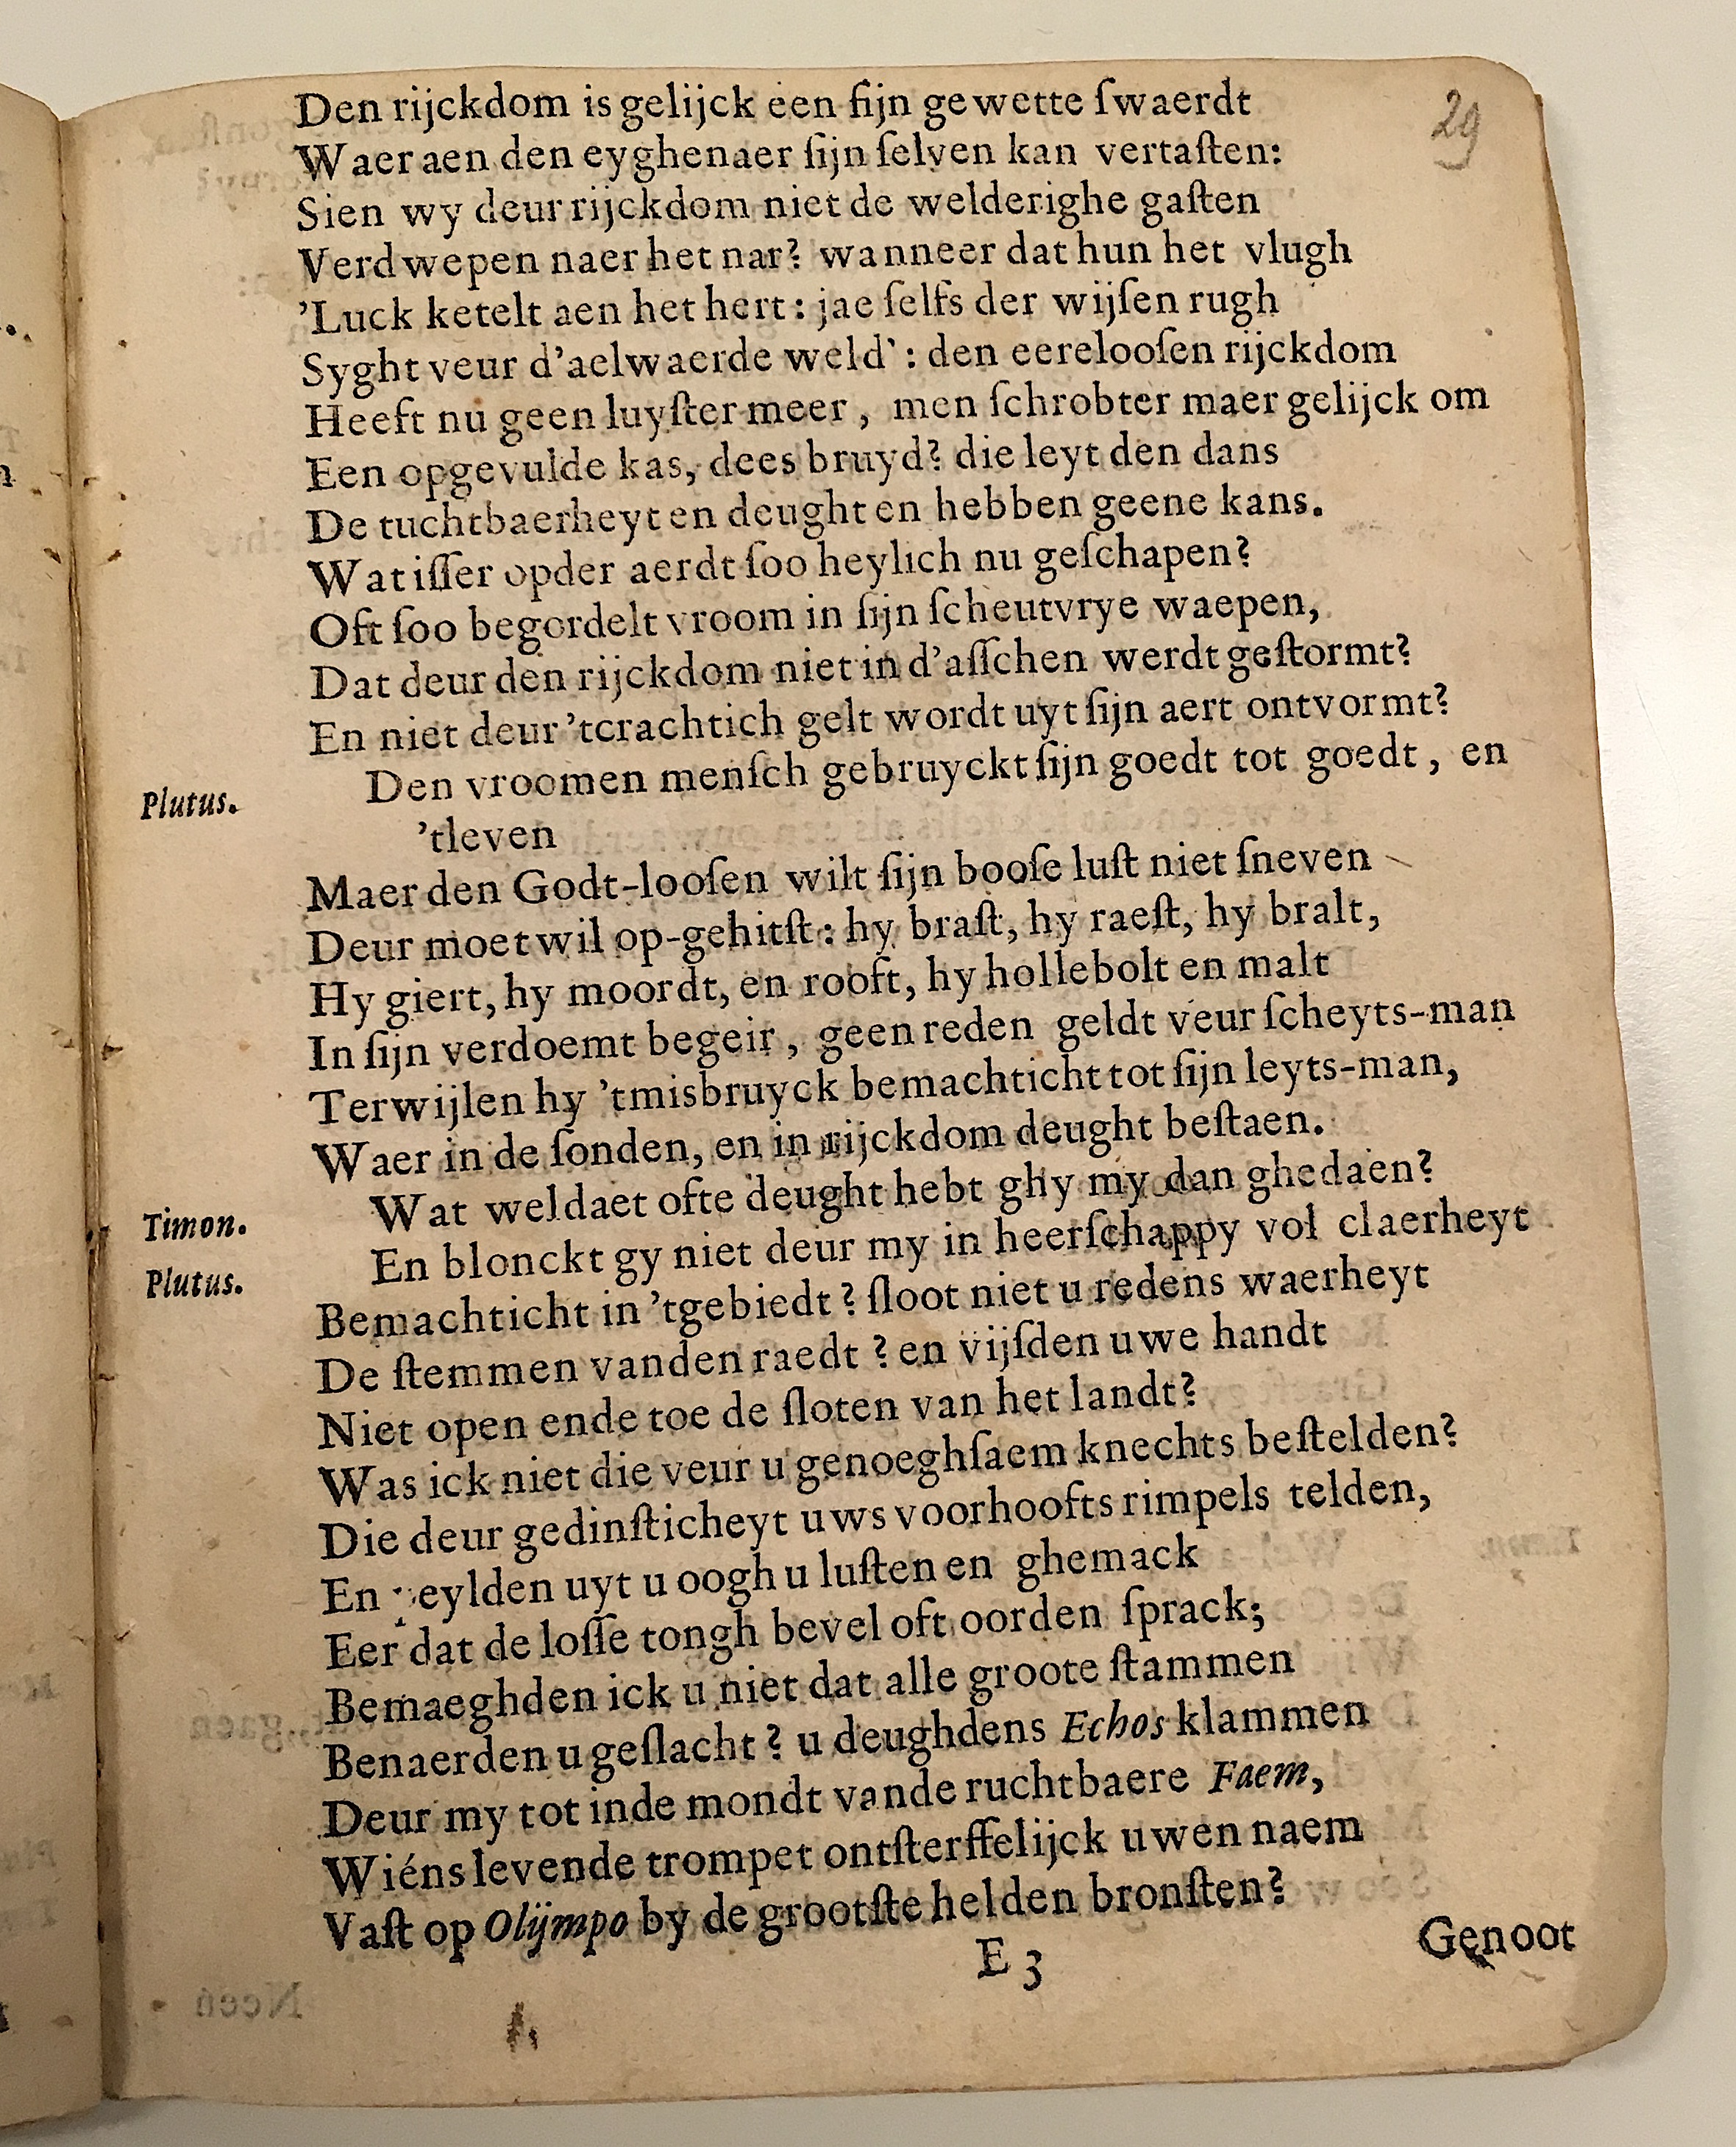 29
Den rijckdom is gelijck een ſijn gewette ſwaerdt
Waer aen den eyghenaer ſijn ſelven kan vertaſten:
Sien wy deur rijckdom niet de welderighe gaſten
Verdwepen naer het nar? wanneer dat hun het vlugh
'Luck ketelt aen het hert: jae ſelfs der wijſen rugh
Syght veur d'aelwaerde weld': den eerelooſen rijckdom
Heeft nu geen luyſter meer, men ſchrobter maer gelijck om
Een opgevulde kas, dees bruyd? die leyt den dans
De tuchtbaerheyt en deught en hebben geene kans.
Wat iſſer opder aerdt ſoo heylich nu geſchapen?
Oft ſoo begordelt vroom in ſijn ſcheutvrye waepen,
Dat deur den rijckdom niet in d'aſſchen werdt geſtormt?
En niet deur 'tcrachtich gelt wordt uyt ſijn aert ontvormt?
Plutus. Den vroomen menſch gebruyckt ſijn goedt tot goedt, en
'tleven
Maer den Godt-looſen wilt ſijn booſe luſt niet ſneven
Deur moetwil op-gehitſt: hy braſt, hy raeſt, hy bralt,
Hy giert, hy moordt, en rooft, hy hollebolt en malt
In ſijn verdoemt begeir, geen reden geldt veur ſcheyts-man
Terwijlen hy 'tmisbruyck bemachticht tot ſijn leyts-man,
Waer in de ſonden, en in rijckdom deught beſtaen.
Timon. Wat weldaet ofte deught hebt ghy my dan ghedaen?
Plutus. En blonckt gy niet deur my in heerſchappy vol claerheyt
Bemachticht in 'tgebiedt? ſloot niet u redens waerheyt
De ſtemmen vanden raedt? en vijſden uwe handt
Niet open ende toe de ſloten van het landt?
Was ick niet die veur u genoeghſaem knechts beſtelden?
Die deur gedinſticheyt uws voorhoofts rimpels telden,
En eylden uyt u oogh u luſten en ghemack
Eer dat de loſſe tongh bevel oft oorden ſprack;
Bemaeghden ick u niet dat alle groote ſtammen
Benaerden u geſlacht? u deughdens Echos klammen
Deur my tot inde mondt vande ruchtbaere Faem,
Wiéns levende trompet ontſterffelijck uwen naem
Vaſt op Olijmpo by de grootſte helden bronſten?
E 3
Genoot